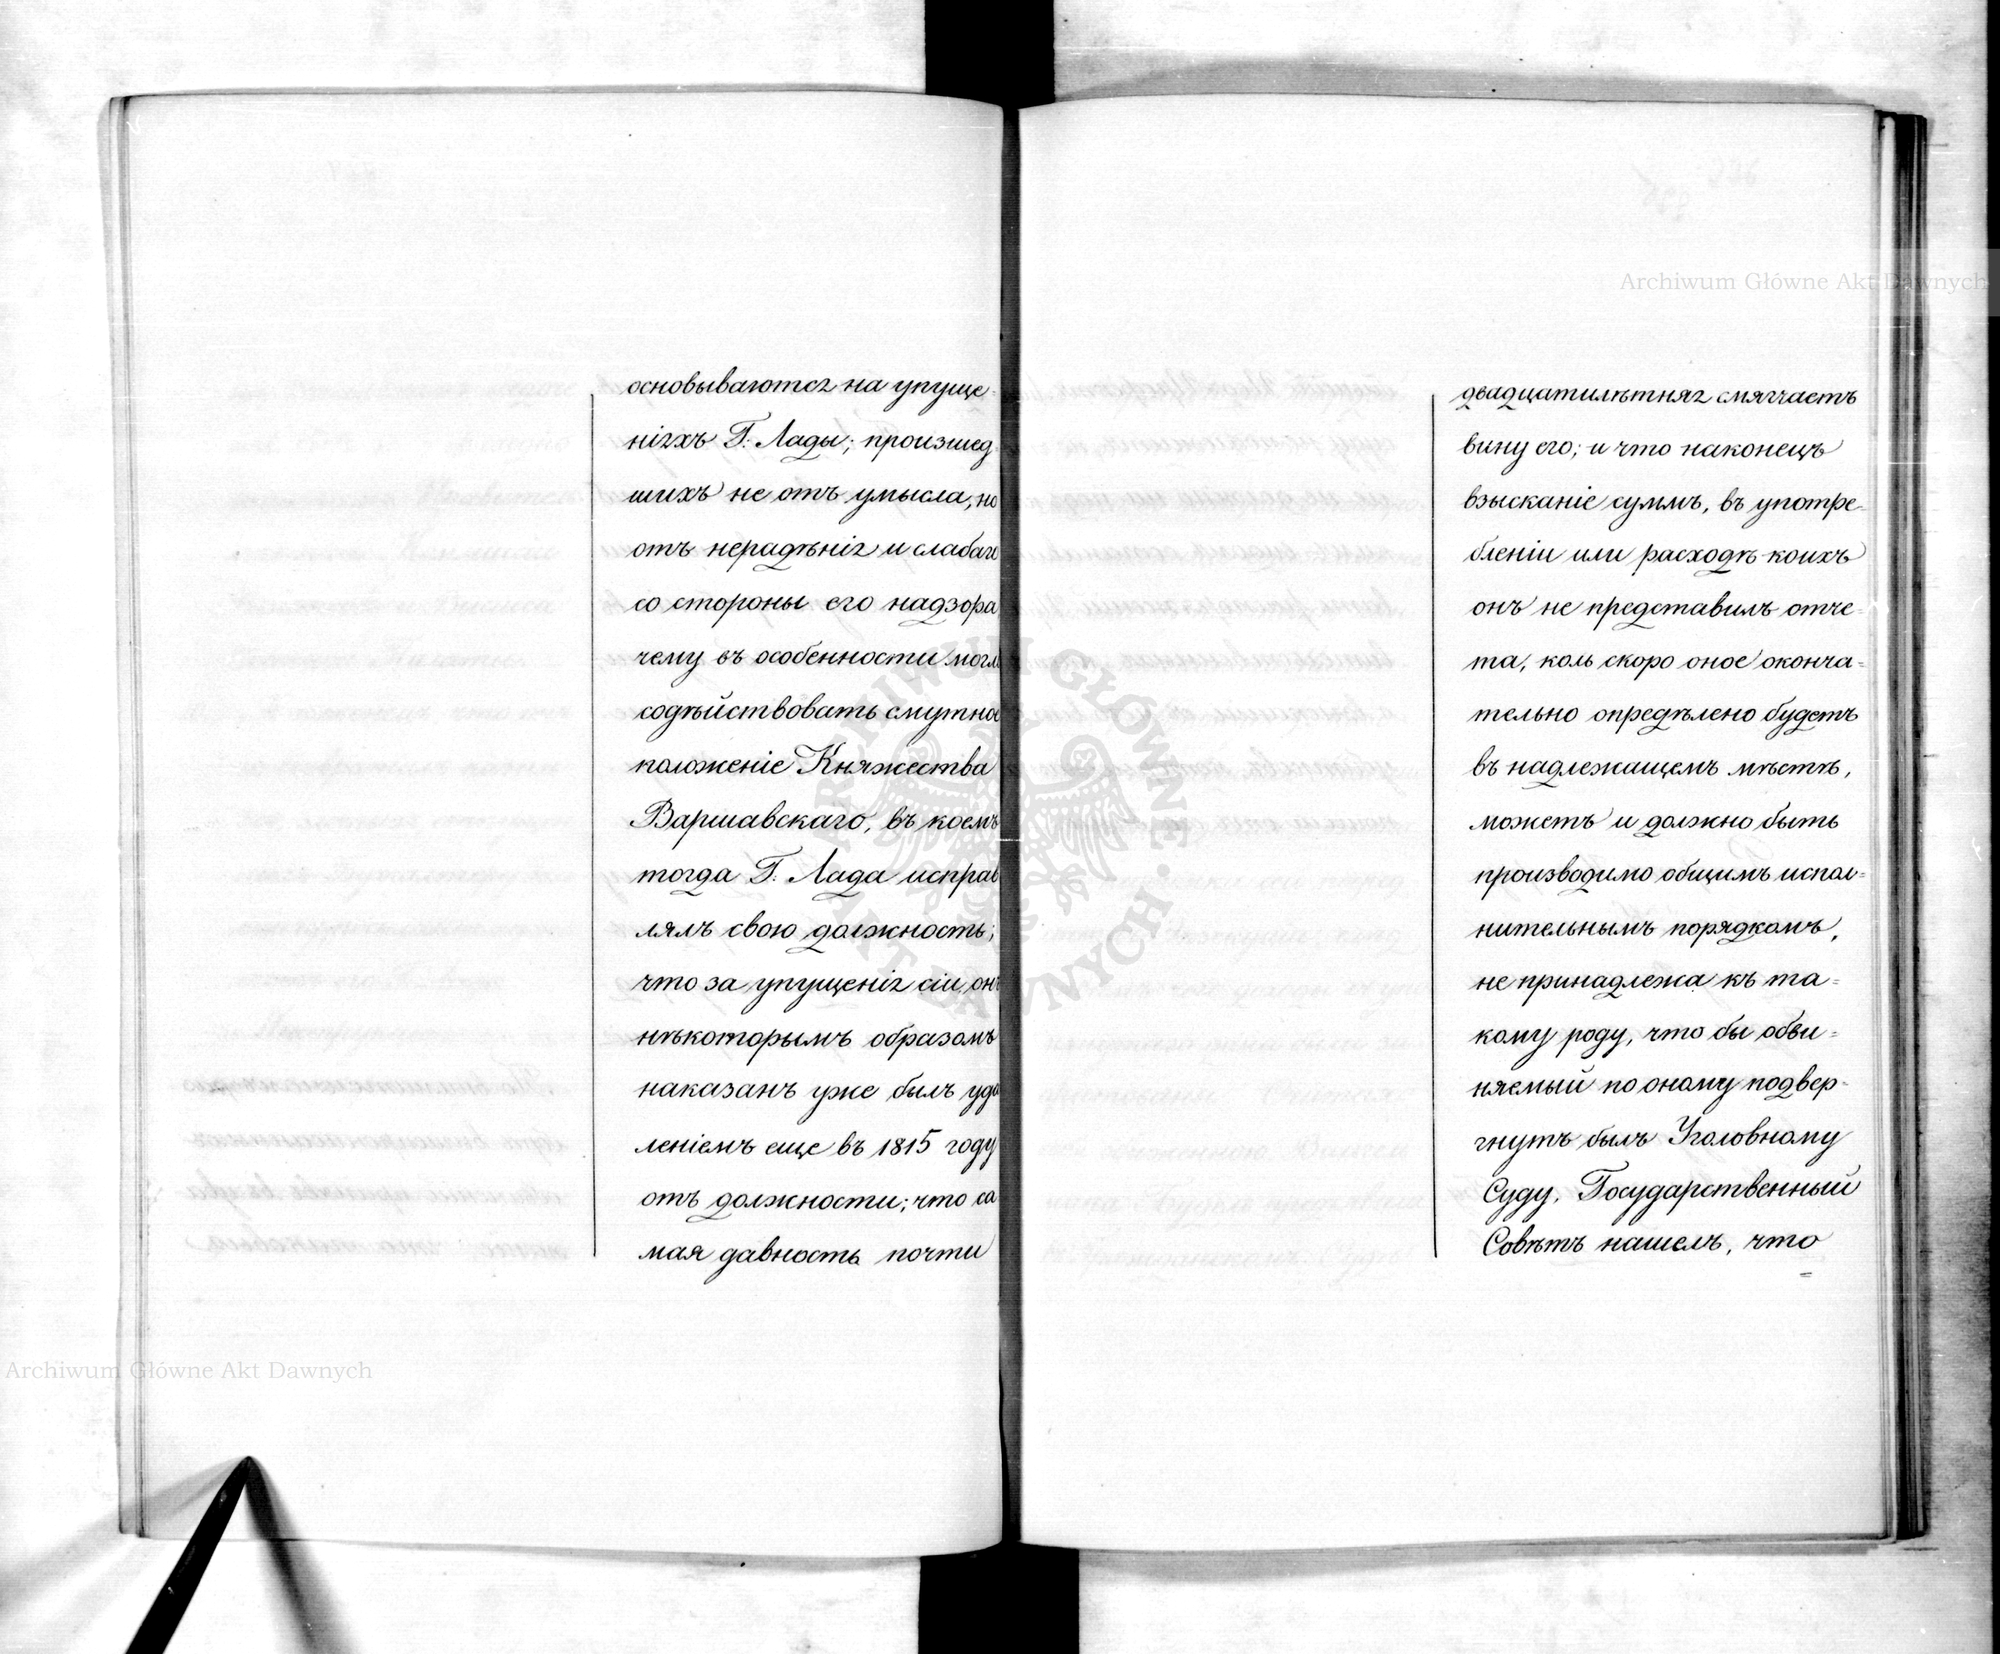 основываются на упуще-
ніяхъ Г: Лады; произшед
шихъ не отъ умысла, но
отъ нерадѣнія и слабаго
со стороны его надзора,
чему въ особенности могло
содѣйствовать смутное
положеніе Княжества
Варшавскаго, въ коемъ
тогда Г: Лада исправ
лялъ свою должность;
что за упущенія сіи, онъ
нѣкоторымъ образомъ
наказанъ уже былъ уда
леніемъ еще въ 1815 году
отъ должности; что са
мая давность почти
двадцатилѣтняя смягчаетъ
вину его; и что наконецъ
взысканіе суммъ, въ употре-
бленіи или расходѣ коихъ
онъ не представилъ отче-
та, коль скоро оное оконча-
тельно опредѣлено будетъ
въ надлежащемъ мѣстѣ,
можетъ и должно быть
производимо общимъ испол-
нительнымъ порядкомъ,
не принадлежа къ та-
кому роду, что бы обви-
няемый по оному подвер-
гнутъ былъ Уголовному
Суду. Государственный
Совѣтъ нашелъ, что
Archiwum Główne Akt Dawnych
Archiwum Główne Akt Dawnych
ARCHIWUM GŁÓWNE AKT DAWNYCH